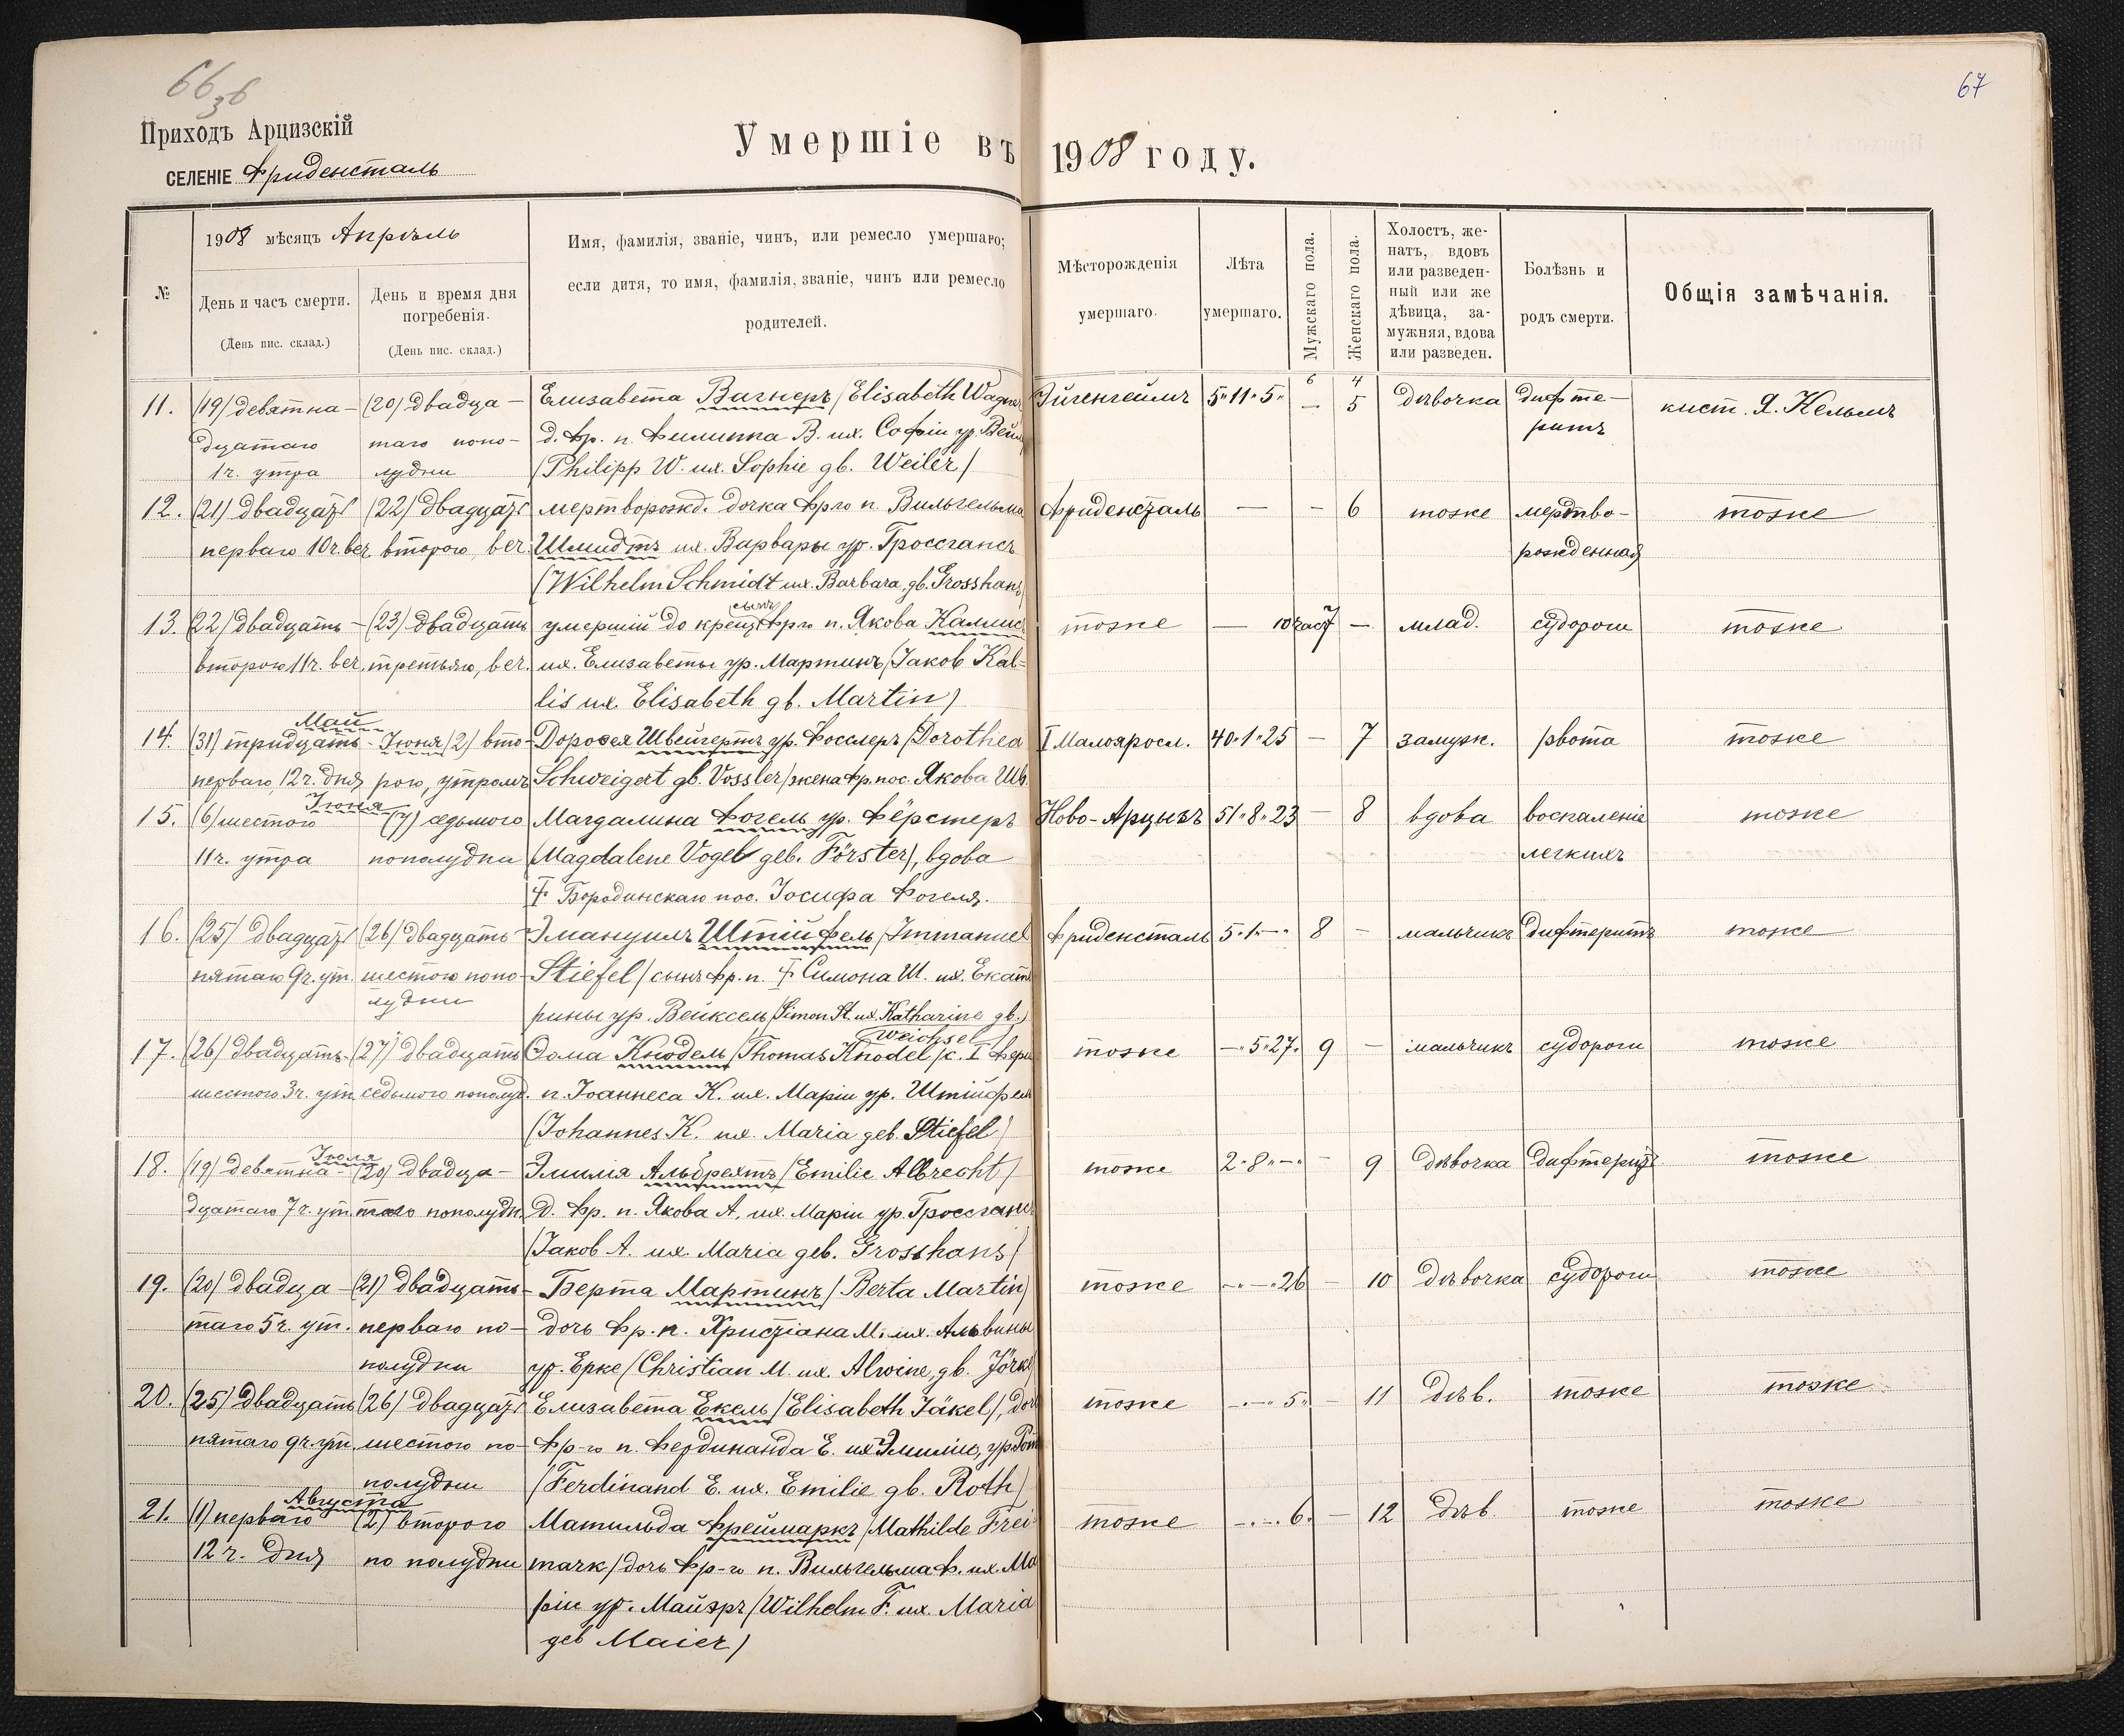 66 зб
67
Приходъ Арцизскій
СЕЛЕНІЕ Фриденсталь
Умершіе въ 1908 году.
№
1908 мѣсяцъ Апрѣль
День и часъ смерти.
(День пис. склад.)
День и время дня погребенія.
(День пис. склад.)
Имя, фамилія, званіе, чинъ, или ремесло умершаго;
если дитя, то имя, фамилія, званіе, чинъ или ремесло
родителей.
Мѣсторожденія
умершаго.
Лѣта
умершаго.
Мужскаго пола.
Женскаго пола.
Холостъ, же-
натъ, вдовъ
или разведен-
ный или же
дѣвица, за-
мужняя, вдова
или разведен.
Болѣзнь и
родъ смерти.
Общія замѣчанія.
6 4
11. (19) девятна- (20) двадца- Елизавета Вагнеръ (Elisabeth Wagner Эйгенгеймъ 5"11"5" — 5 дѣвочка дифте- кист. Я. Кельмъ
дцатаго таго попо- д. Фр. п. Филиппа В. их. Софіи ур. Вейл ритъ
1 ч. утра лудни (Philipp W. их. Sophie gb. Weiler)
12. (21) двадцать (22) двадцать мертворожд. дочка Фрго п. Вильгельма Фриденсталь — - 6 тоже мертво- тоже
перваго 10ч. веч второго, веч. Шмидтъ их. Варвары ур. Гроссгансъ рожденная
(Wilhelm Schmidt их. Barbara, gb. Grosshans)
сынъ
13. (22) двадцать- (23) двадцать умершій до крещ. Фрго п. Якова Каллис тоже — 10 час 7 — млад. судороги тоже
второго 11ч. веч. третьяго, веч. их. Елизаветы ур. Мартинъ (Jakob Kal-
lis их. Elisabeth gb. Martin)
Май
14. (31) тридцать- Іюня (2) вто- Доротея Швейгертъ ур. Фосслеръ (Dorothea I Малояросл. 40"1"25 — 7 замуж. рвота тоже
перваго, 12ч. дня рого, утромъ Schweigert gb. Vossler) жена Фр. пос. Якова Шв.
Іюня
15. (6) шестого (7) седьмого Магдалина Фогель ур. Фёрстеръ Ново-Арцызъ 51"8"23 — 8 вдова воспаленіе тоже
11ч. утра пополудни (Magdalene Vogel geb. Förster), вдова легкихъ
Ŧ Бородинскаго пос. Іосифа Фогеля.
16. (25) двадцать (26) двадцать- Эмануилъ Штійфель (Immanuel Фриденсталь 5"1"—" 8 — мальчикъ дифтеритъ тоже
пятаго 9ч. ут. шестого попо- Stiefel) сынъ Фр. п. Ŧ Симона Ш. их. Екате
лудни рины ур. Вейксель (Simon St. их. Katharine gb.
Weichsel)
17. (26) двадцать- (27) двадцать Ѳома Кнодель (Thomas Knodel) с. I Фери тоже —"5"27" 9 — мальчикъ судороги тоже
шестого 3ч. ут. седьмого пополуд. п. Іоаннеса К. их. Маріи ур. Штійфель
(Johannes K. их. Maria geb. Stiefel)
Іюля
18. (19) девятна- (20) двадца- Эмилія Альбрехтъ (Emilie Albrecht) тоже 2"8"—" — 9 дѣвочка дифтеритъ тоже
дцатаго 7ч. ут. таго пополудн. д. Фр. п. Якова А. их. Маріи ур. Гроссганс
(Jakob A. их. Maria geb. Grosshans)
19. (20) двадца- (21) двадцать- Берта Мартинъ (Berta Martin) тоже —"—"26 — 10 дѣвочка судороги тоже
таго 5ч. ут. перваго по- дочь Фр. п. Христіана М. их. Альвины
полудни ур. Ерке (Christian M. их. Alwine, gb. Jörke)
20. (25) двадцать (26) двадцать Елизавета Екель (Elisabeth Jäkel), доч тоже —"—"5" — 11 дѣв. тоже тоже
пятаго 9ч. ут. шестого по- Фр-го п. Фердинанда Е. их Эмиліи, ур. Рот
полудни (Ferdinand E. их. Emilie gb. Roth)
Августа
21. (1) перваго (2) второго Матильда Фреймаркъ (Mathilde Frei- тоже —"—"6" — 12 дѣв. тоже тоже
12 ч. дня по полудни mark) дочь Фр-го п. Вильгельма Ф. их. Ма
ріи ур. Майэръ (Wilhelm F. их. Maria
geb Maier)